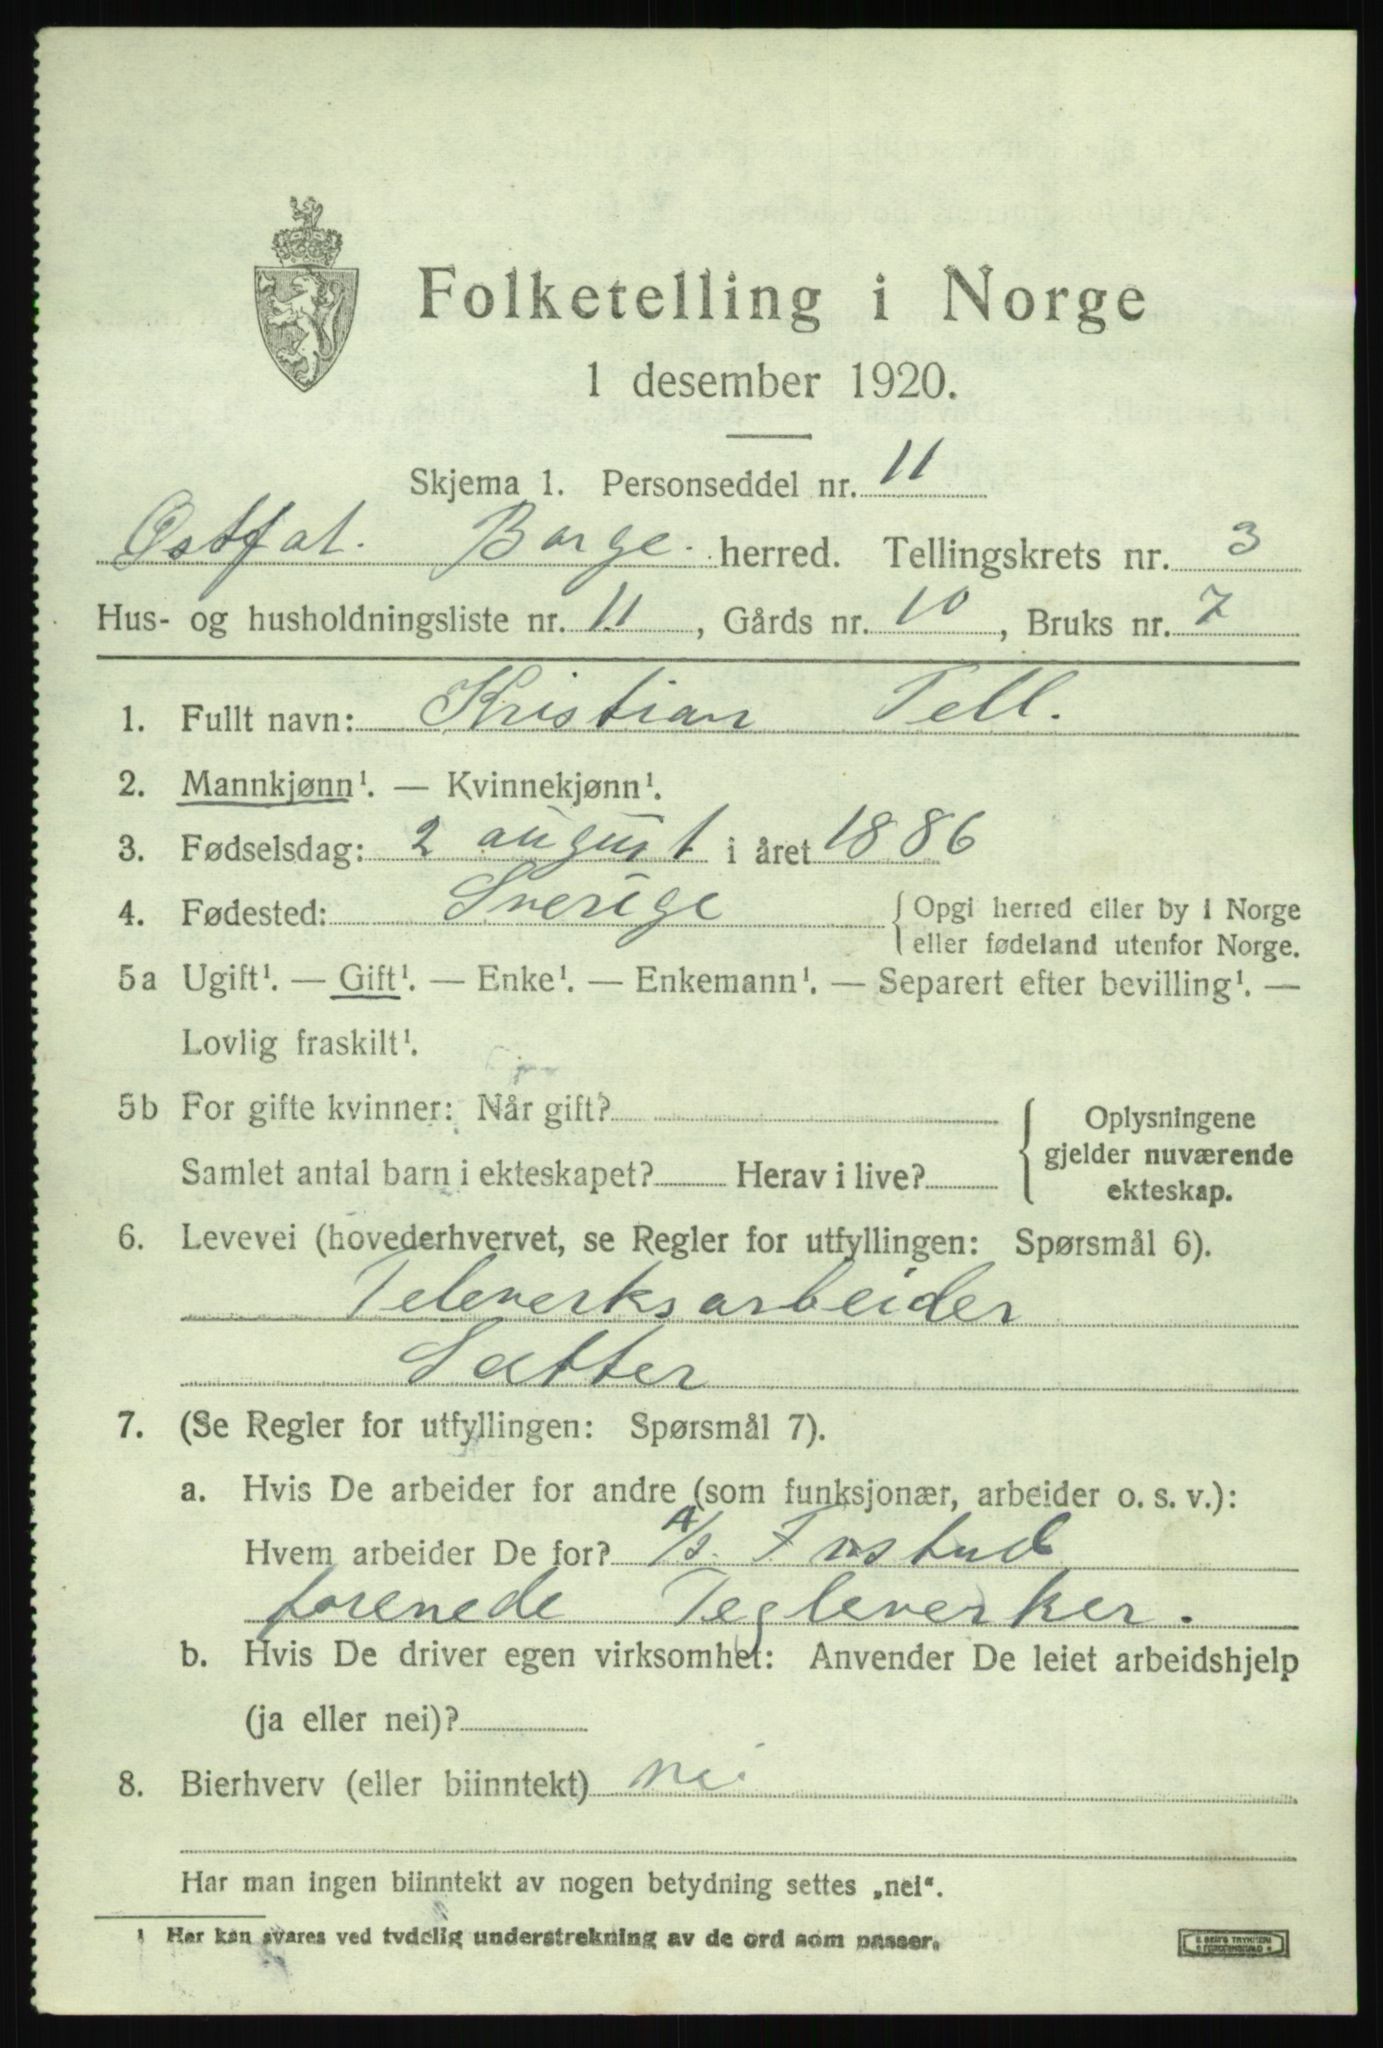 Folketelling i Norge
1 desember 1920.
Skjema 1. Personseddel nr. 11
Østfol. Borge herred. Tellingskrets nr. 3
Hus- og husholdningsliste nr. 11, Gårds nr. 10, Bruks nr. 7
1. Fullt navn: Kristian Tell.
2. Mannkjønn¹. — Kvinnekjønn¹.
3. Fødselsdag: 2 august i året 1886
4. Fødested: Sverige { Opgi herred eller by i Norge
eller fødeland utenfor Norge.
5a Ugift¹. — Gift¹. — Enke¹. — Enkemann¹. — Separert efter bevilling¹. —
Lovlig fraskilt¹.
5b For gifte kvinner: Når gift? { Oplysningene
gjelder nuværende
ekteskap.
Samlet antal barn i ekteskapet? Herav i live?
6. Levevei (hovederhvervet, se Regler for utfyllingen: Spørsmål 6).
Televerksarbeider
Sætter
7. (Se Regler for utfyllingen: Spørsmål 7).
a. Hvis De arbeider for andre (som funksjonær, arbeider o. s. v.):
Hvem arbeider De for? A/s.
forenede Tegleverker.
b. Hvis De driver egen virksomhet: Anvender De leiet arbeidshjelp
(ja eller nei)?
8. Bierhverv (eller biinntekt) nei
Har man ingen biinntekt av nogen betydning settes „nei“.
¹ Her kan svares ved tydelig understrekning av de ord som passer.